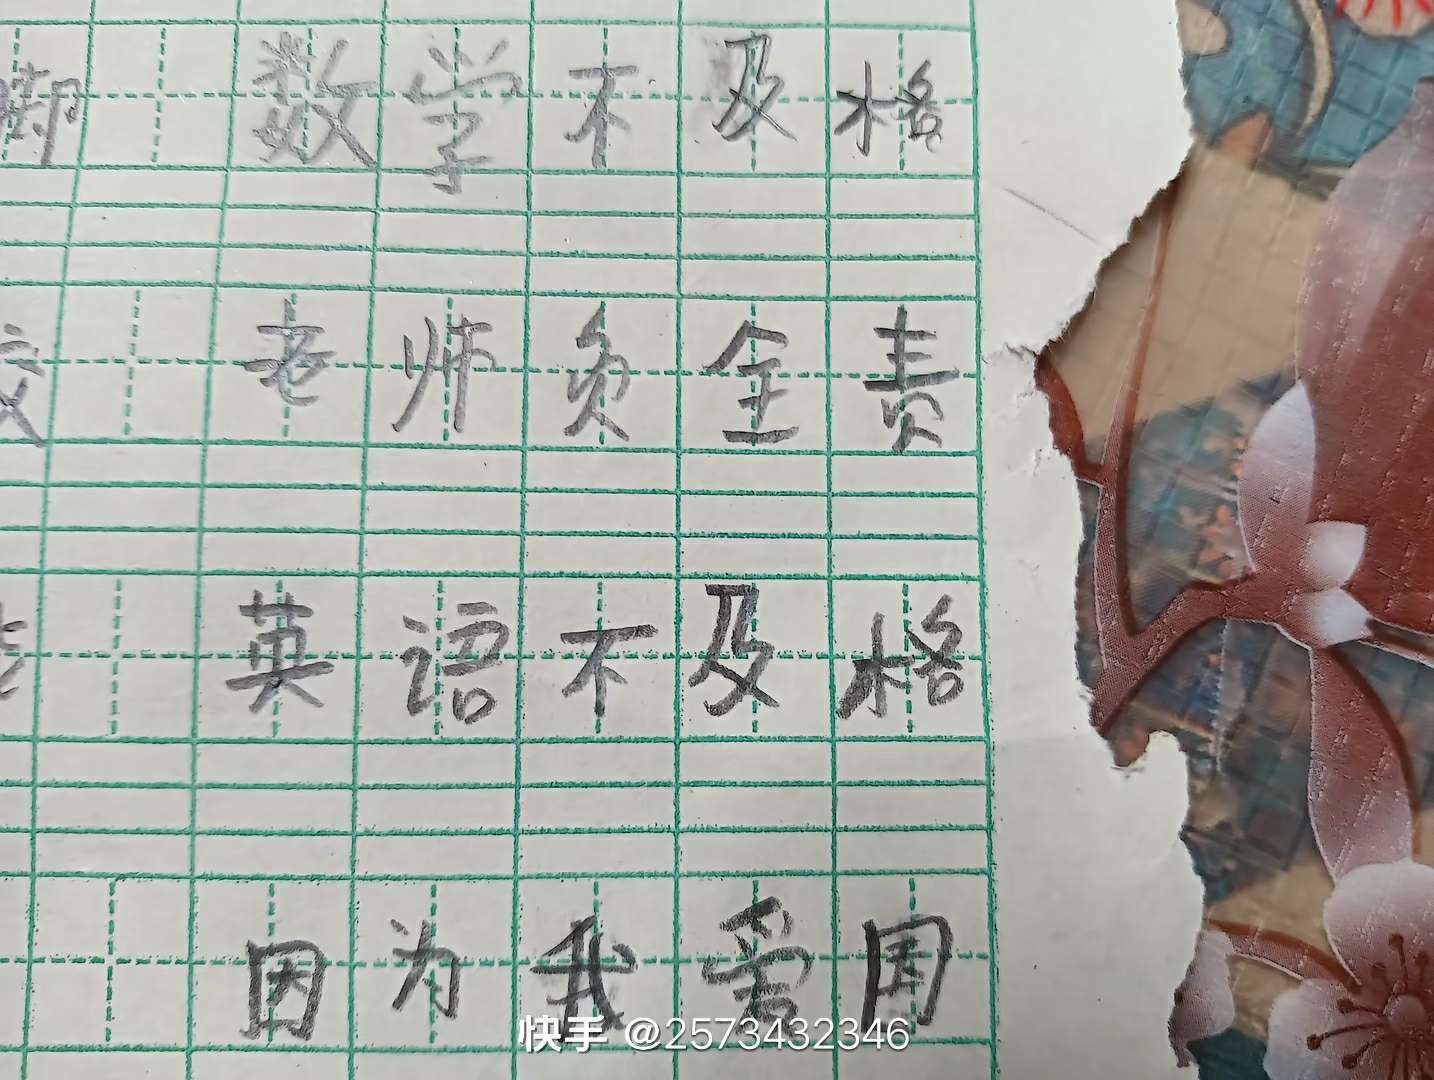 脚 数学不及格
校 老师负全责
英语不及格
因为我爱国
快手 @2573432346